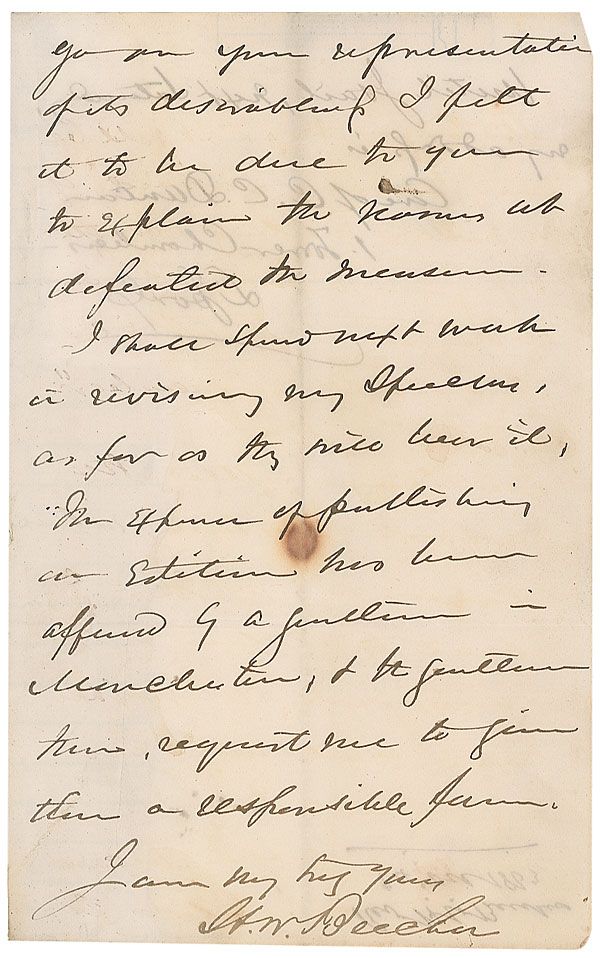 go on your representation
of its desirableness I felt
it to be due to you
to explain the reasons wh
defeated the measure.
I shall spend next week
in revising my speeches,
as far as they will bear it,
The expense of publishing
an Edition has been
offered by a gentleman in
Manchester, & the gentlemen
there, request me to give
them a responsible form.
I am very truly yours
H. W. Beecher